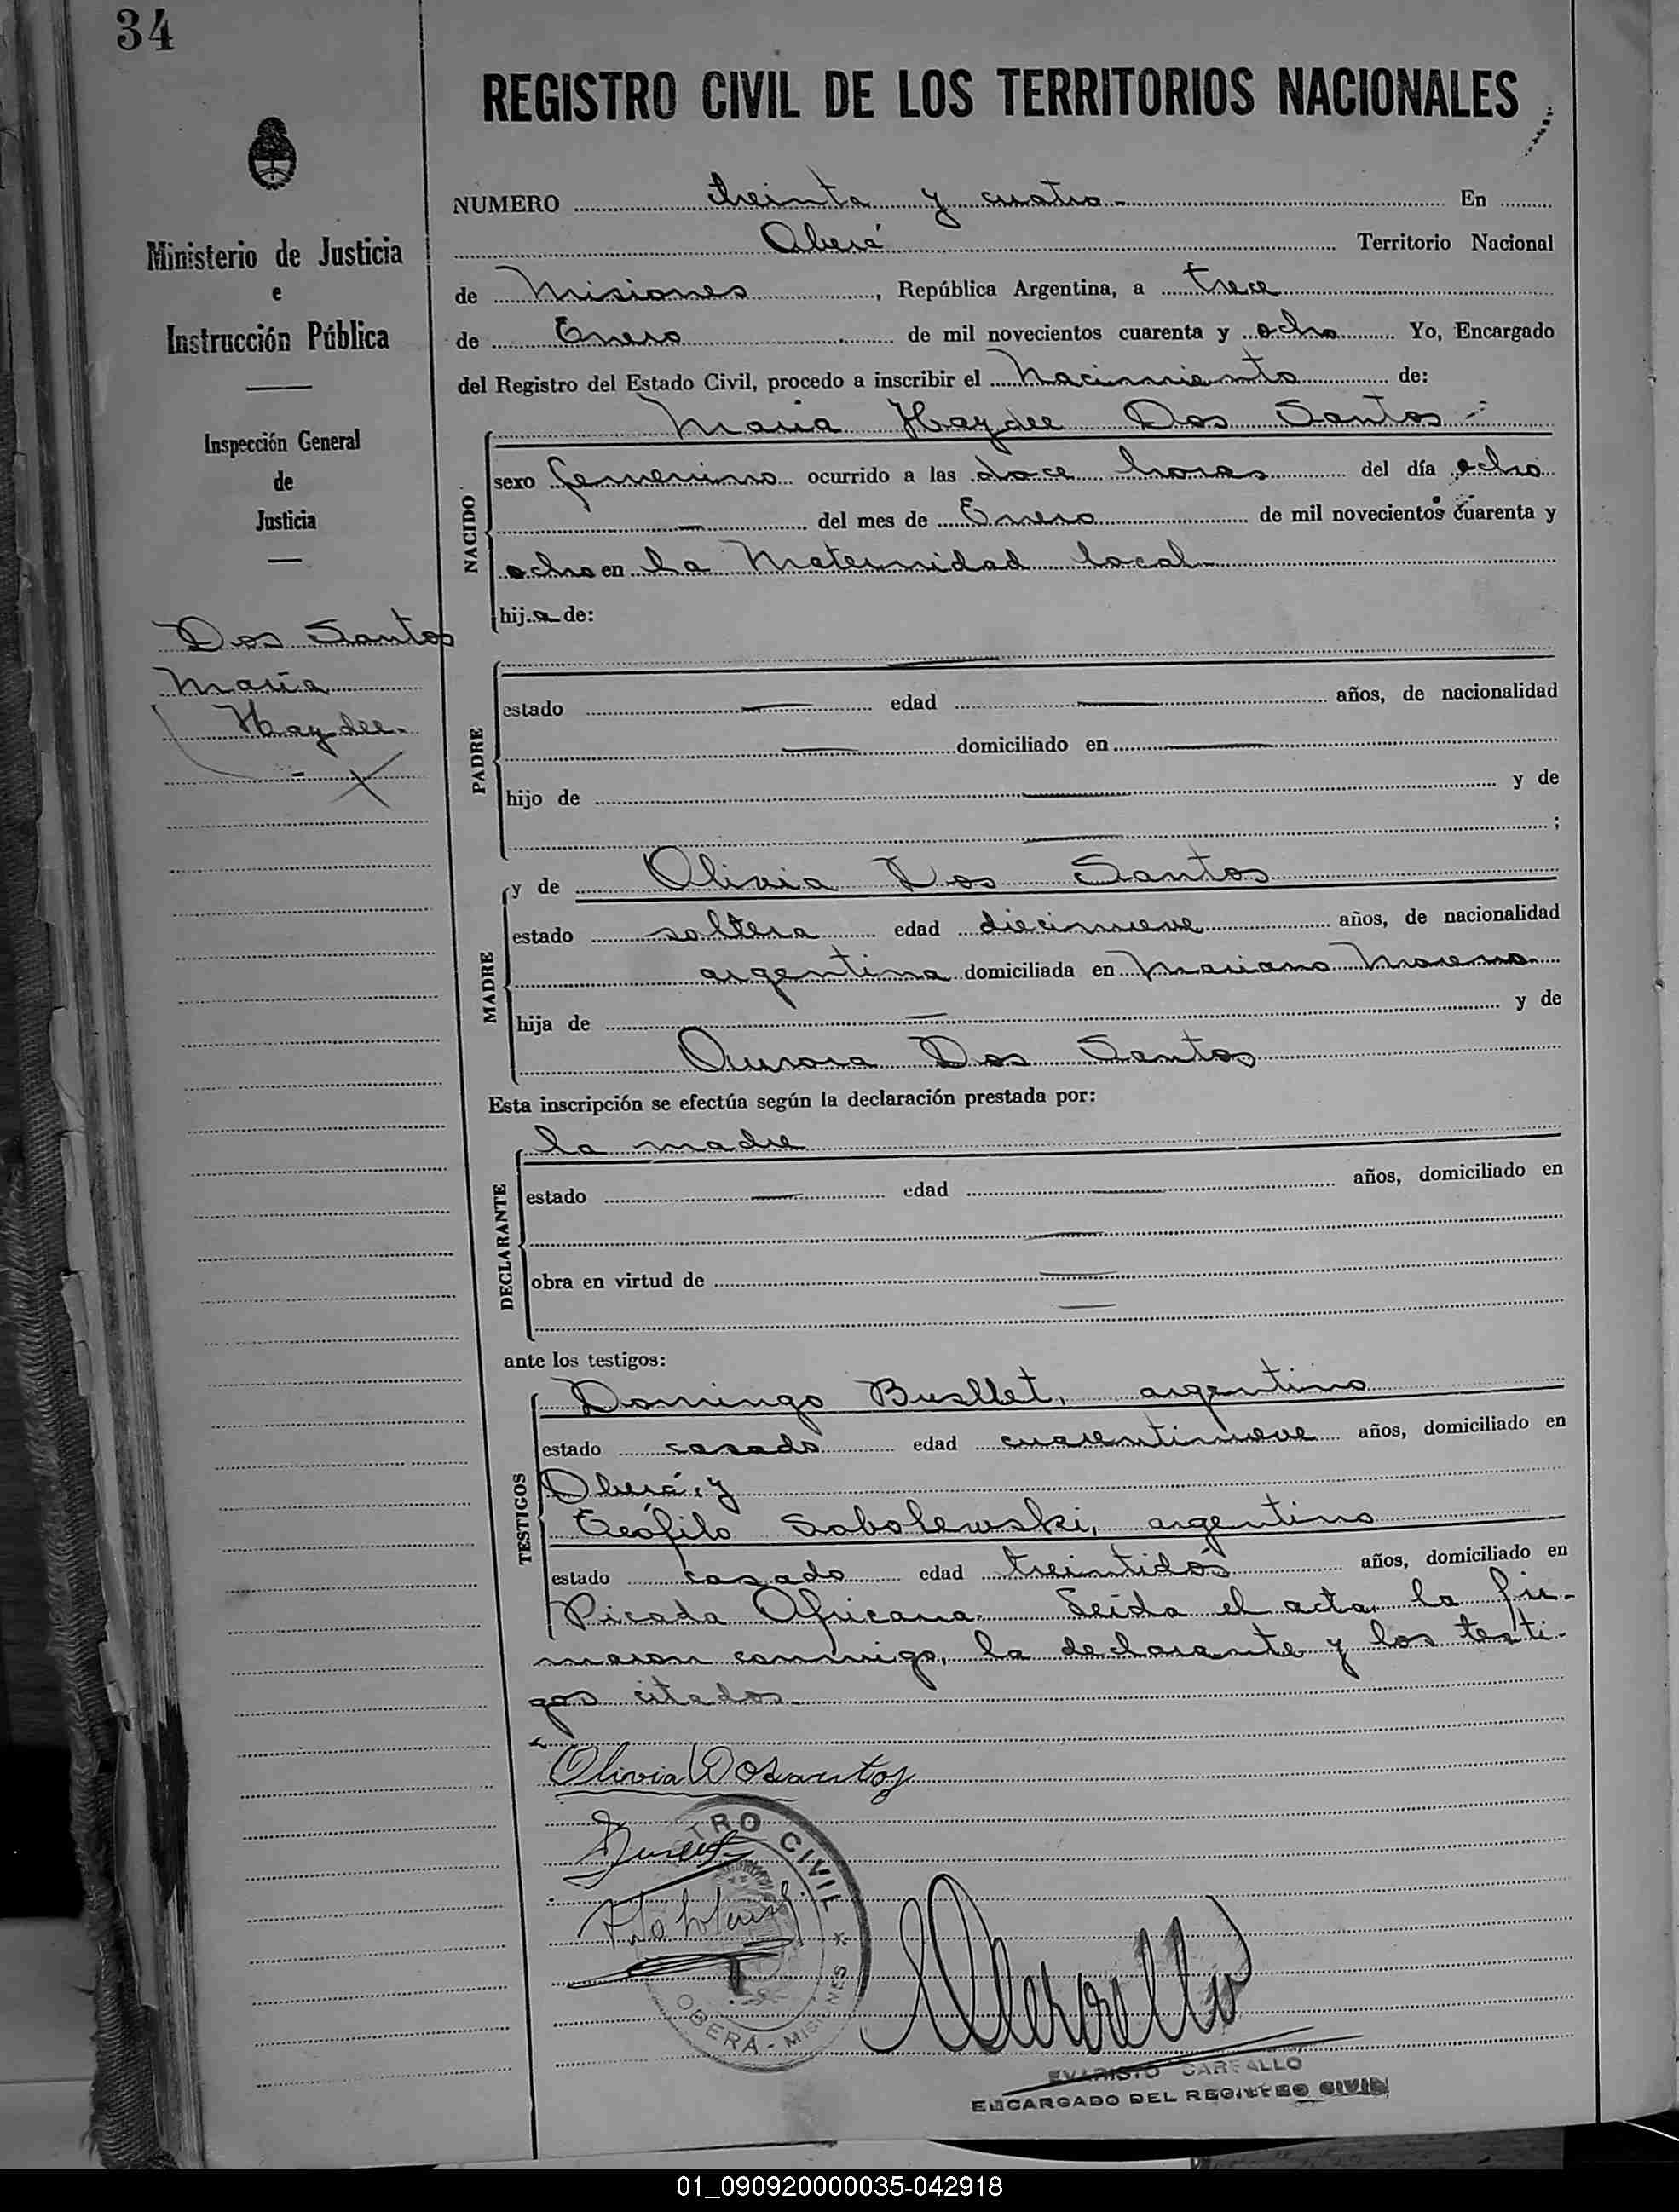 34
REGISTRO CIVIL DE LOS TERRITORIOS NACIONALES
Ministerio de Justicia
e
Instrucción Pública
Inspección General
de
Justicia
Dos Santos
María
Haydee.
NUMERO treinta y cuatro - En
Oberá Territorio Nacional
de Misiones, República Argentina, a trece
de Enero de mil novecientos cuarenta y ocho Yo, Encargado
del Registro del Estado Civil, procedo a inscribir el nacimiento de:
Maria Haydee Dos Santos -
NACIDO
sexo femenino ocurrido a las doce horas del día ocho
— del mes de Enero de mil novecientos cuarenta y
ocho en la Maternidad local
hija de:
PADRE
estado — edad — años, de nacionalidad
— domiciliado en —
hijo de — y de
— ;
MADRE
y de Olivia Dos Santos
estado soltera edad diecinueve años, de nacionalidad
argentina domiciliada en Mariano Moreno
hija de — y de
Aurora Dos Santos
Esta inscripción se efectúa según la declaración prestada por:
la madre
DECLARANTE
estado — edad — años, domiciliado en
—
obra en virtud de —
—
ante los testigos:
TESTIGOS
Domingo argentino
estado casado edad cuarentinueve años, domiciliado en
Oberá, y
Teófilo Sobolewski, argentino
estado casado edad treintidós años, domiciliado en
Picada Africana. Leída el acta, la fir-
maron conmigo, la declarante y los testi-
gos citados.
Olivia Dosantos
TRO CIVIL *
OBERA - MISIONES
EVARISTO CARFALLO
ENCARGADO DEL REGISTRO CIVIL
01_090920000035-042918